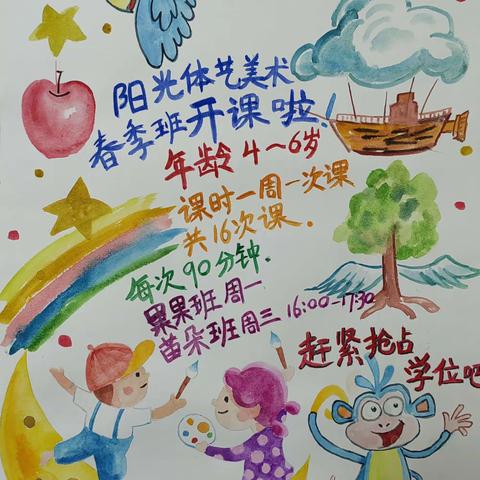 阳光体艺美术
春季班开课啦！
年龄4～6岁
课时一周一次课
共16次课.
每次90分钟.
果果班周一
苗朵班周三 16:00-17:30
赶紧抢占
学位吧